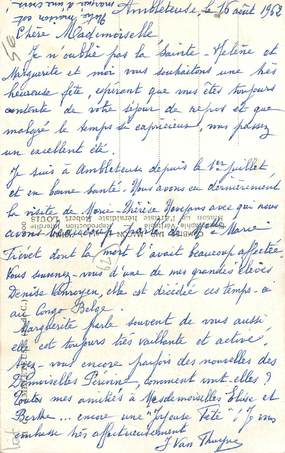 Ambleteuse, le 16 août 1962
Chère Mademoiselle
Je n'oublie pas la Sainte-Hélène et
Marguerite et moi vous souhaitons une très
heureuse fête, espérant que vous êtes toujours
contente de votre séjour de repos et que
malgré le temps si capricieux, vous passez
un excellent été.
Je suis à Ambleteuse depuis le 1er juillet
et en bonne santé. Nous avons eu dernièrement
la visite de Marie-Thérèse avec qui nous
avons beaucoup parlé de Marie
dont la mort l'avait beaucoup affectée.
Vous souvenez-vous d'une de mes grandes élèves
Denise, elle est décédée ces temps-ci
au Congo Belge.
Marguerite parle souvent de vous aussi,
elle est toujours très vaillante et active.
Avez-vous encore parfois des nouvelles des
Demoiselles, comment vont-elles ?
Toutes mes amitiés à Mesdemoiselles Elise et
Berthe... encore une "Joyeuse Fête", je vous
embrasse très affectueusement